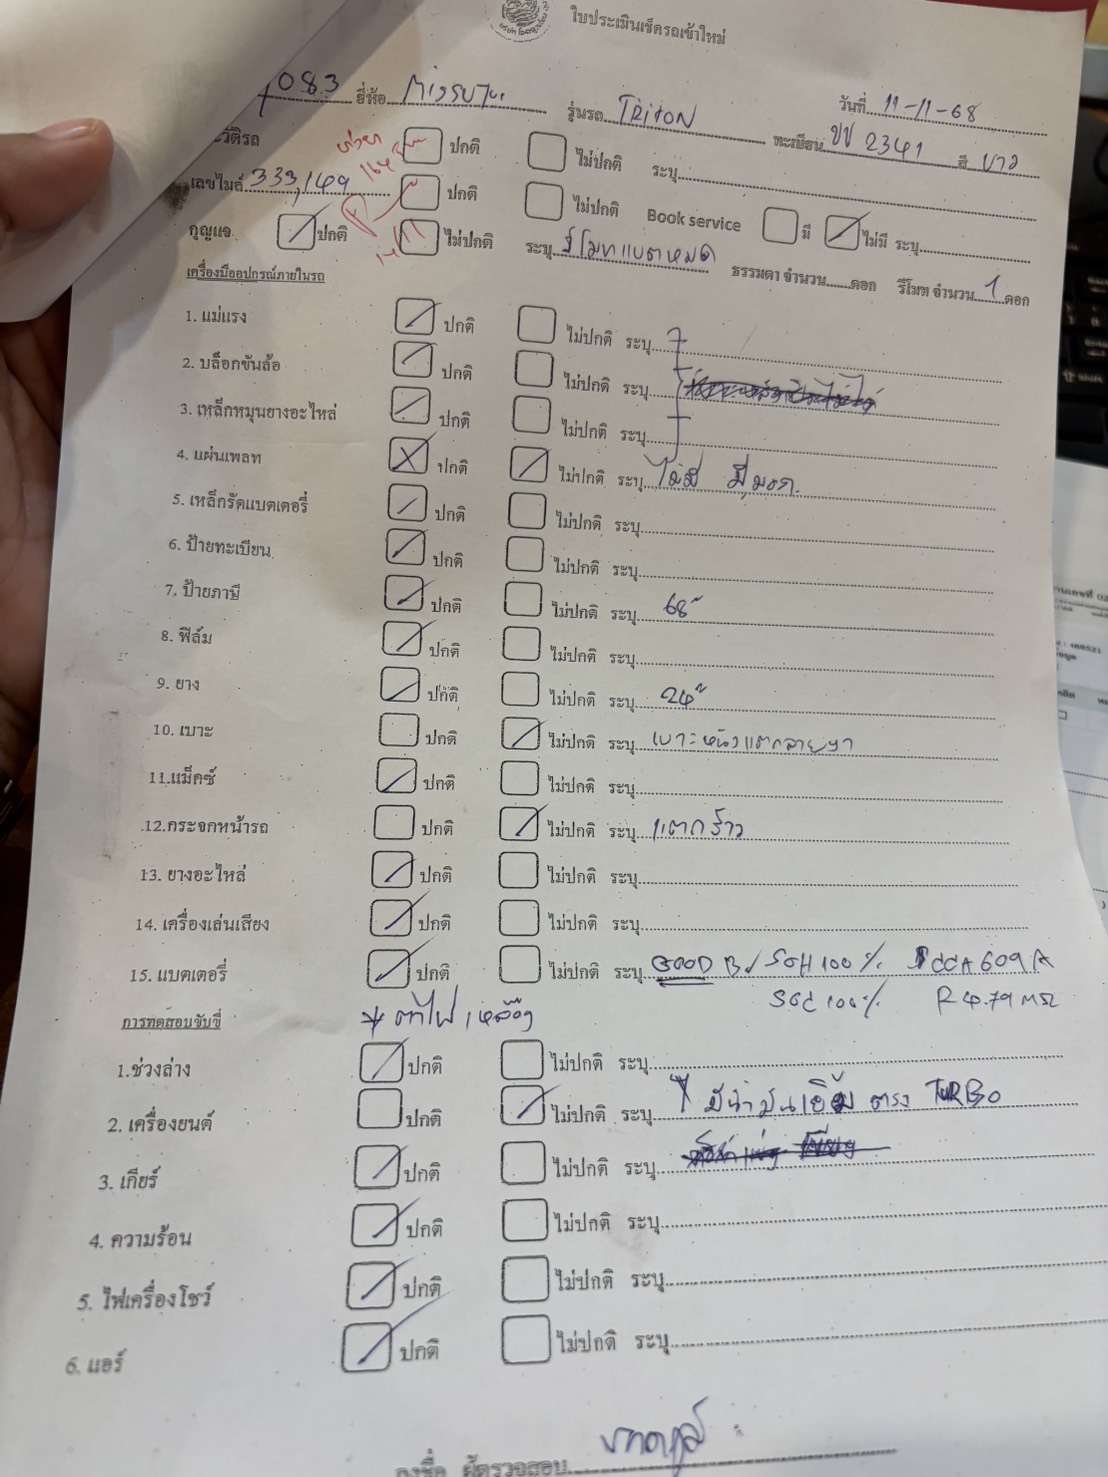 ใบประเมินเช็ครถเข้าใหม่
083 ยี่ห้อ Missubi รุ่นรถ TRITON วันที่ 11-11-68
ทะเบียน ขข 2341 สี ขาว
วัติรถ ปกติ ไม่ปกติ ระบุ
เลขไมล์ 333,149 ปกติ ไม่ปกติ Book service มี ไม่มี ระบุ
กุญแจ ปกติ ไม่ปกติ ระบุ รีโมทแบตหมด ธรรมดา จำนวน ดอก รีโมท จำนวน 1 ดอก
เครื่องมืออุปกรณ์ภายในรถ
1. แม่แรง ปกติ ไม่ปกติ ระบุ
2. บล็อกขันล้อ ปกติ ไม่ปกติ ระบุ
3. เหล็กหมุนยางอะไหล่ ปกติ ไม่ปกติ ระบุ
4. แผ่นเพลท ปกติ ไม่ปกติ ระบุ ไม่มี
5. เหล็กรัดแบตเตอรี่ ปกติ ไม่ปกติ ระบุ
6. ป้ายทะเบียน ปกติ ไม่ปกติ ระบุ
7. ป้ายภาษี ปกติ ไม่ปกติ ระบุ 68"
8. ฟิล์ม ปกติ ไม่ปกติ ระบุ
9. ยาง ปกติ ไม่ปกติ ระบุ 24"
10. เบาะ ปกติ ไม่ปกติ ระบุ เบาะหนังแตกลายงา
11.แม็กซ์ ปกติ ไม่ปกติ ระบุ
12.กระจกหน้ารถ ปกติ ไม่ปกติ ระบุ แตกร้าว
13. ยางอะไหล่ ปกติ ไม่ปกติ ระบุ
14. เครื่องเล่นเสียง ปกติ ไม่ปกติ ระบุ
15. แบตเตอรี่ ปกติ ไม่ปกติ ระบุ GOOD SOH 100% CCA 609 A
SOC 100% R 4.79 mΩ
การทดสอบขับขี่ * ตาไฟเหลือง
1.ช่วงล่าง ปกติ ไม่ปกติ ระบุ
2. เครื่องยนต์ ปกติ ไม่ปกติ ระบุ มีน้ำมันเยิ้ม ตรง TURBO
3. เกียร์ ปกติ ไม่ปกติ ระบุ
4. ความร้อน ปกติ ไม่ปกติ ระบุ
5. ไฟเครื่องโชว์ ปกติ ไม่ปกติ ระบุ
6. แอร์ ปกติ ไม่ปกติ ระบุ
ลงชื่อ ผู้ตรวจสอบ